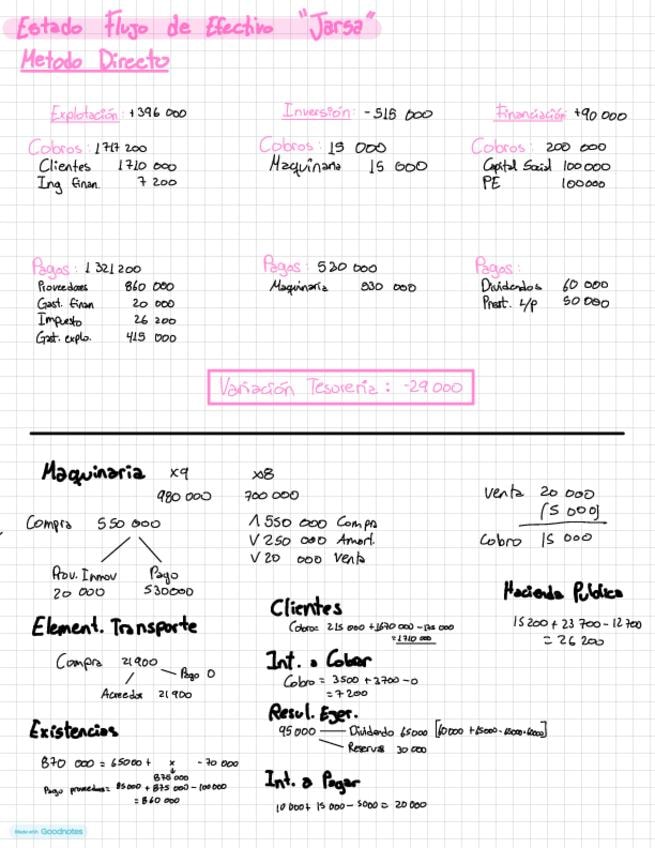 Estado Flujo de Efectivo "Jarsa"
Metodo Directo
Explotación: +396 000
Cobros: 1717 200
Clientes 1710 000
Ing finan. 7 200
Pagos: 1 321 200
Proveedores 860 000
Gast. finan 20 000
Impuesto 26 200
Gast. explo. 415 000
Inversión: -515 000
Cobros: 15 000
Maquinaria 15 000
Pagos: 530 000
Maquinaria 530 000
Financiación: +90 000
Cobros: 200 000
Capital Social 100 000
PE 100000
Pagos:
Dividendos 60 000
Prest. L/p 50 000
Variación Tesorería: -29 000
Maquinaria x9 x8
980 000 700 000
Compra 550 000
Prov. Inmov Pago
20 000 530000
Λ 550 000 Compra
V 250 000 Amort.
V 20 000 Venta
Venta 20 000
(5 000)
Cobro 15 000
Element. Transporte
Compra 21900
Pago 0
Acreedor 21 900
Existencias
870 000 = 65000 + x - 70 000
875 000
Pago proveedores = 85000 + 875 000 - 100000
= 860 000
Clientes
Cobros= 215 000 + 1670 000 - 175 000
= 1710 000
Int. a Cobrar
Cobro = 3500 + 3700 - 0
= 7 200
Resul. Ejer.
95 000 Dividendo 65000
Reservas 30 000
Int. a Pagar
10 000 + 15 000 - 5000 = 20 000
Hacienda Publica
15 200 + 23 700 - 12 700
= 26 200
Made with Goodnotes